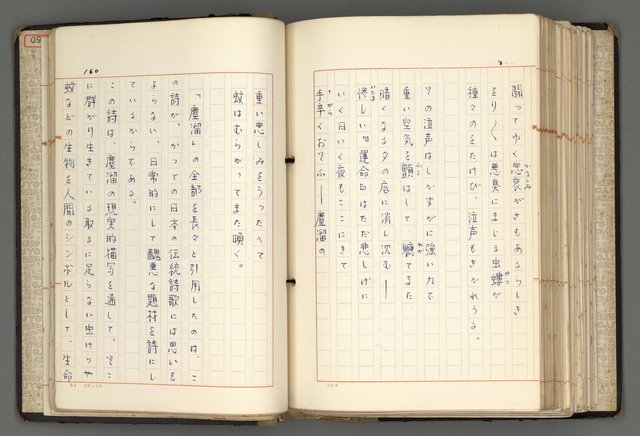 闘つてゆく悲哀がさもあるらしき
をり〱は悪臭にまじる虫螻が
種々のをたけび、泣声もきかれうる。
その泣声はしかすがに強い力で
重い空気を顫はして、聴てまた
暗くなる夕の底に消し沈む―
惨しい『運命』はただ悲しげに
いく日いく夜もここにきて
手辛くおそふ―塵溜の
160
重い悲しみをうつたへて
蚊はむらがつてまた喚く。
「塵溜」の全部を長々と引用したのは、こ
の詩が、かつての日本の伝統詩歌には思いも
よらない、日常的にして醜悪な題材を詩にし
ているからである。
この詩は、塵溜の現実的描写を通して、そこ
に群がり生きている取るに足らない虫けらや
蚊などの生物を人間のシンボルとして、生命